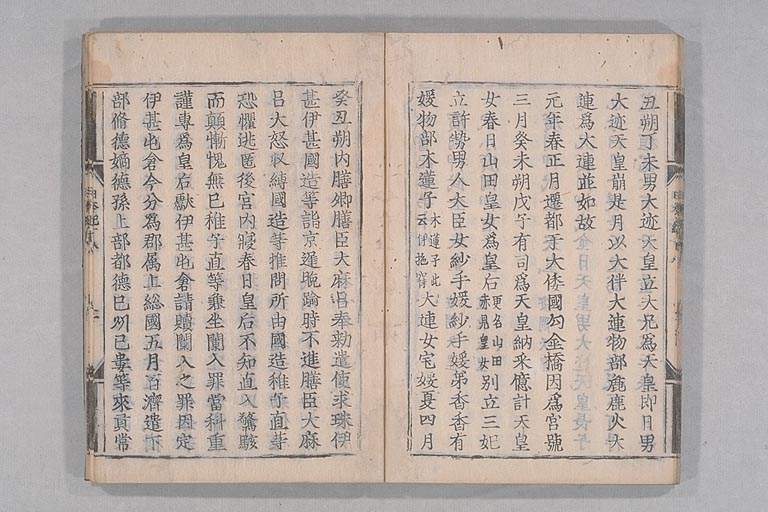 丑朔丁未男大迹天皇立大兄爲天皇即日男
大迹天皇崩是月以大伴大連物部麁鹿火大
連爲大連並如故
元年春正月遷都于大倭國勾金橋因爲宮號
三月癸未朔戊子有司爲天皇納采億計天皇
女春日山田皇女爲皇后更名山田赤見皇女別立三妃
立許勢男人大臣女紗手媛紗手媛弟香香有
媛物部木蓮子木蓮子此云伊拖寐大連女宅媛夏四月
癸丑朔内膳卿膳臣大麻呂奉勅遣使求珠伊
甚伊甚國造等詣京遲晩踰時不進膳臣大麻
呂大怒収縛國造等推問所由國造稚子直等
恐懼逃匿後宮内寝春日皇后不知直入驚駭
而顛慚愧無已稚子直等兼坐闌入罪當科重
謹專爲皇后獻伊甚屯倉請贖闌入之罪因定
伊甚屯倉今分爲郡属上総國五月百濟遣下
部脩德嫡德孫上部都德己州己婁等來貢常